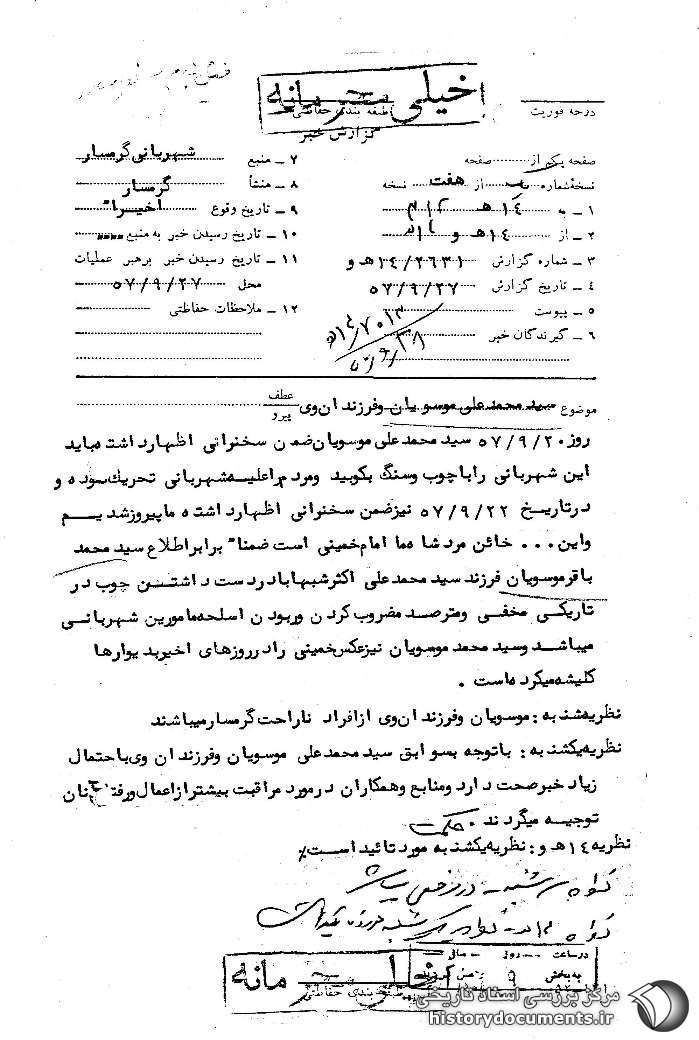 خیلی محرمانه
طبقه بندی حفاظتی
گزارش خبر
درجه فوریت
صفحه یکم از صفحه
نسخه شماره از هفت نسخه
۱ – به ۱۴ هـ
۲ – از ۱۴ هـ و
۳ – شماره گزارش ۱۴/۲۶۳۱ هـ و
۴ – تاریخ گزارش ۵۷/۹/۲۷
۵ – پیوست
۶ – گیرندگان خبر
۷ – منبع شهربانی گرمسار
۸ – منشأ گرمسار
۹ – تاریخ وقوع اخیراً
۱۰ – تاریخ رسیدن خبر به منبع
۱۱ – تاریخ رسیدن خبر برهبر عملیات
محل ۵۷/۹/۲۷
۱۲ – ملاحظات حفاظتی
موضوع سید محمد علی موسویان وفرزندان وی عطف پیرو
روز ۵۷/۹/۲۰ سید محمد علی موسویان ضمن سخنرانی اظهارداشته باید
این شهربانی را با چوب وسنگ بکوبید ومردم را علیه شهربانی تحریک نموده و
درتاریخ ۵۷/۹/۲۲ نیزضمن سخنرانی اظهارداشته ما پیروز شدیم
واین ... خائن مرد شاه ما امام خمینی است ضمناً برابر اطلاع سید محمد
باقرموسویان فرزند سید محمد علی اکثر شبها با در دست داشتن چوب در
تاریکی مخفی ومترصد مضروب کردن و ربودن اسلحه مامورین شهربانی
میباشد وسید محمد موسویان نیز عکس خمینی را در روزهای اخیر بدیوارها
کلیشه میکرده است .
نظریه شنبه : موسویان وفرزندان وی ازافراد ناراحت گرمسار میباشند
نظریه یکشنبه : با توجه بسوابق سید محمد علی موسویان وفرزندان وی با احتمال
زیاد خبر صحت دارد ومنابع وهمکاران درمورد مراقبت بیشتر از اعمال و رفتار آنان
توجیه میگردند . حکمت
نظریه ۱۴ هـ و : نظریه یکشنبه مورد تائید است٪
در ساعت روز سال
به بخش
خیلی محرمانه
طبقه بندی حفاظتی
مرکز بررسی اسناد تاریخی
historydocuments.ir